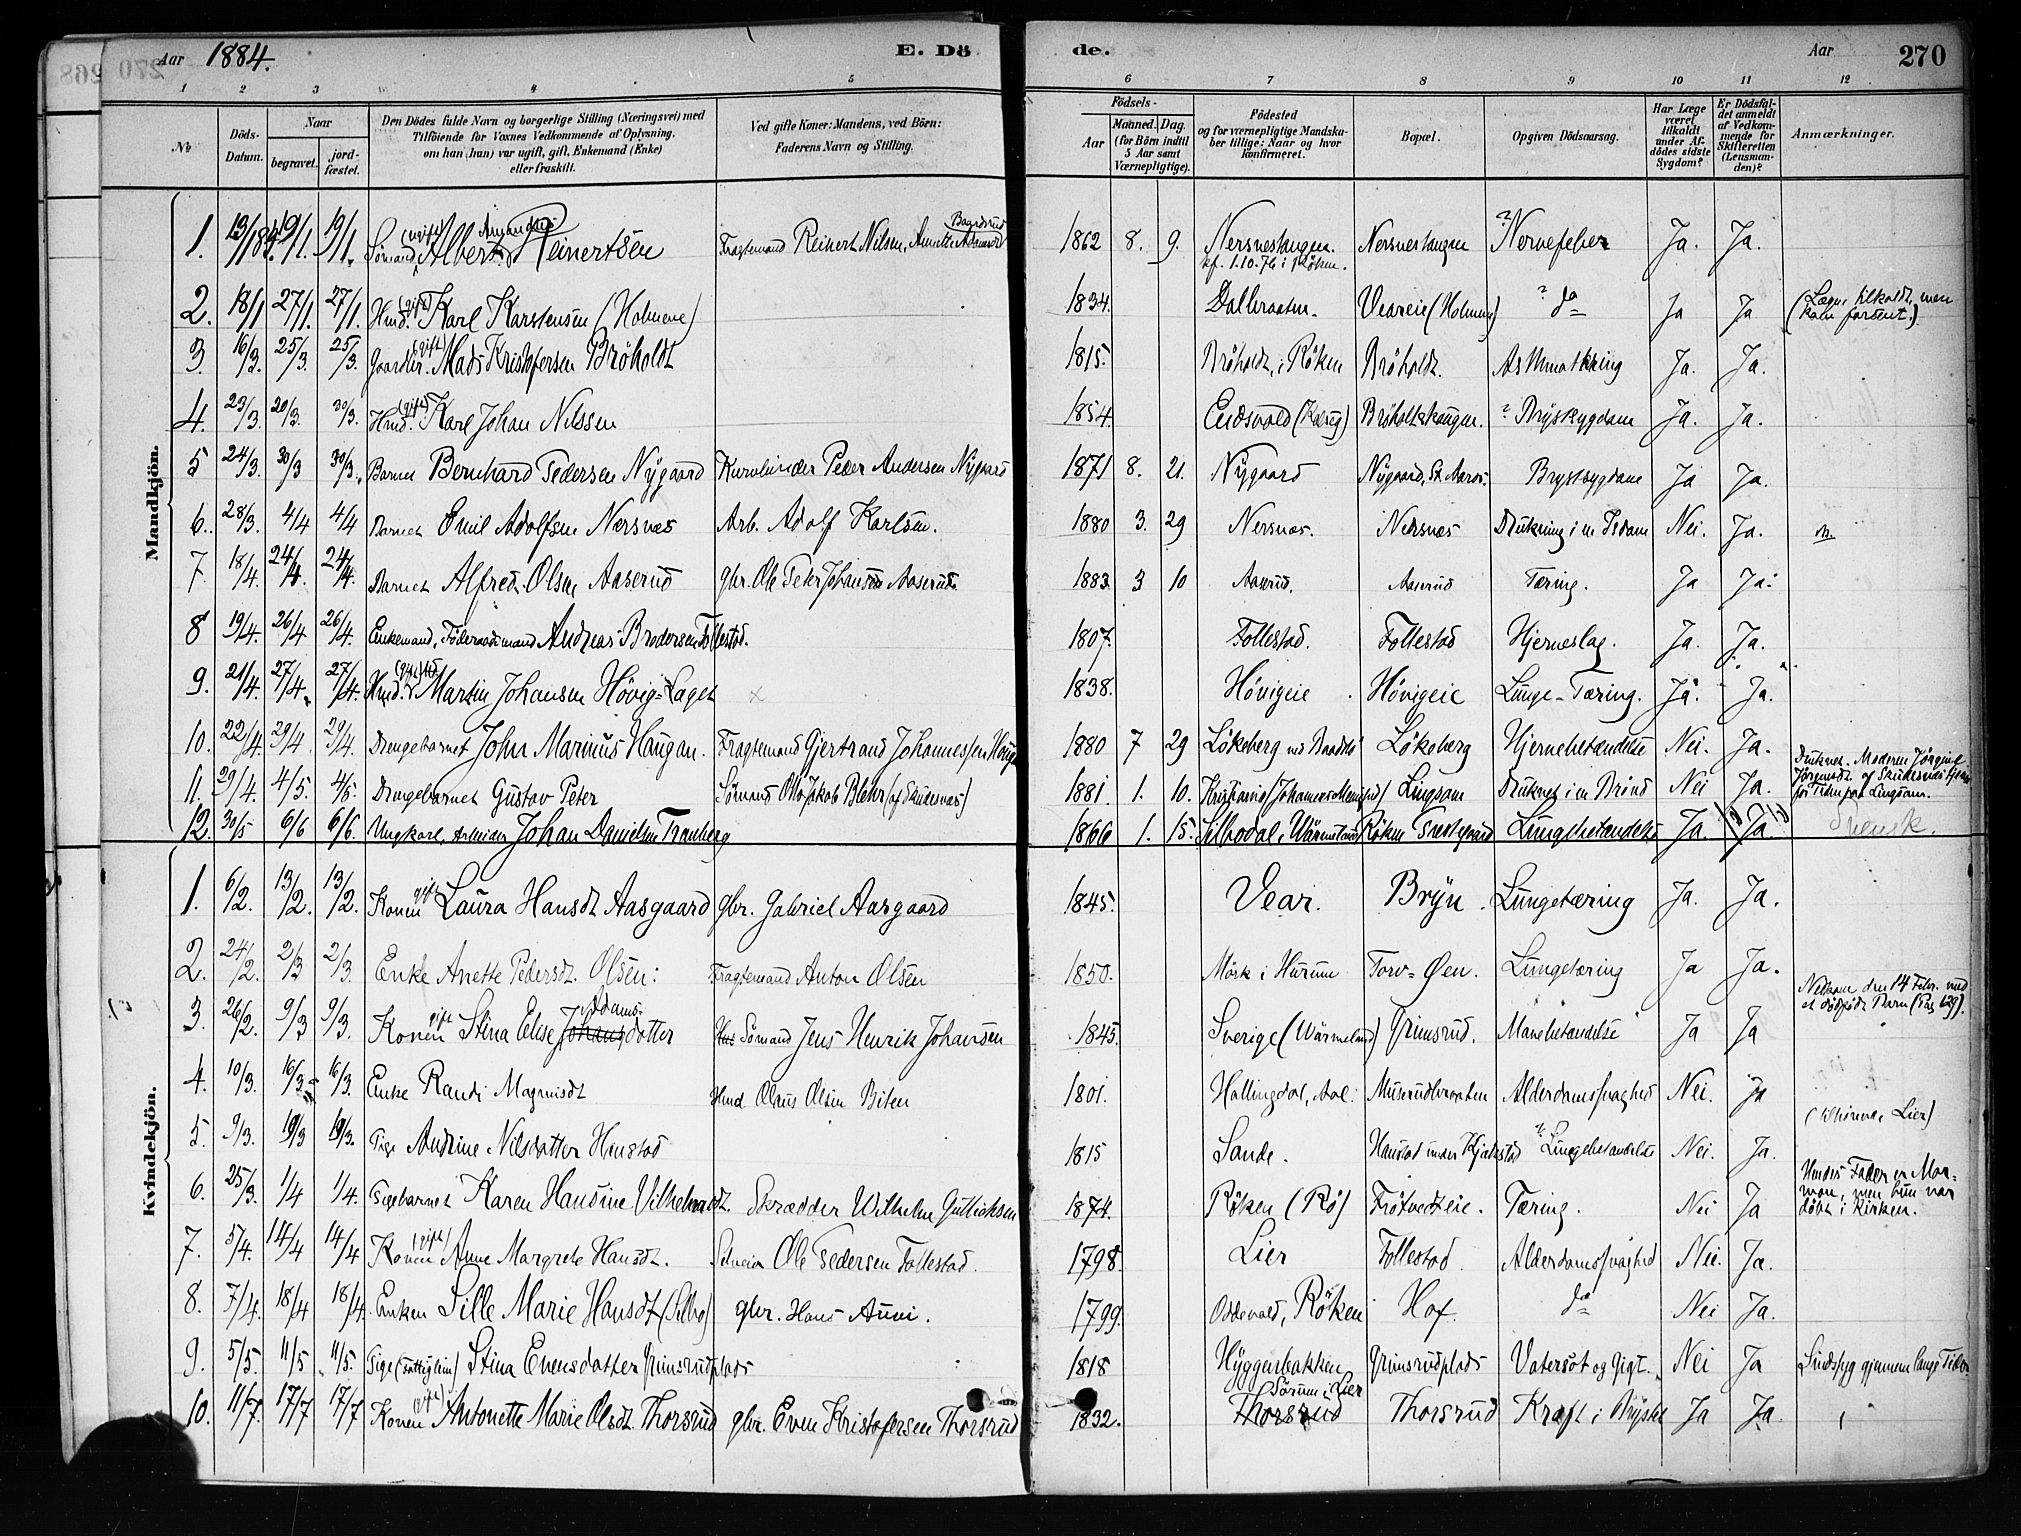 Aar 1884. E. Dö de. Aar 270
1 2 3 4 5 6 7 8 9 10 11 12
No
Döds-Datum.
Naar
begravet.
jord-fæstet.
Den Dödes fulde Navn og borgerlige Stilling (Næringsvei) med
Tilföiende for Voxnes Vedkommende af Oplysning,
om han (hun) var ugift, gift, Enkemand (Enke)
eller fraskilt.
Ved gifte Koner: Mandens, ved Börn:
Faderens Navn og Stilling.
Födsels-
Aar
Maaned. Dag.
(for Börn indtil
5 Aar samt
Værnepligtige).
Födested
og for værnepligtige Mandska-
ber tillige: Naar og hvor
konfirmeret.
Bopæl.
Opgiven Dödsaarsag.
Har Læge
været
tilkaldt
under Af-
dödes sidste
Sygdom?
Er Dödsfal-
det anmeldt
af Vedkom-
mende for
Skifteretten
(Lensman-
den)?
Anmærkninger.
Mandkjön.
1. 13/1 84 19/1. 19/1. Sömand (ugift) Albert Reinertsen Fragtemand Reinert Nilsen, 1862 8. 9. Nersnestangen. kf. 1.10.76 i Röken. Nersnestangen ? Nervefeber Ja. Ja.
2. 18/1 27/1. 27/1. Hmd. (gift) Karl Karstensen (Holmene) 1834. Dalbraaten. Veareie (Holmene) ? do Ja Ja (Læge tilkaldt, men kom forsent.)
3. 16/3. 25/3 25/3. Gaardbr. (gift) Mads Kristofersen Bröholdt 1815. Bröholdt, i Röken Bröholdt. Ja. Ja.
4. 23/3. 30/3. 30/3. Hmd. (gift) Karl Johan Nilssen 1854. Eidsvold Bröholtskougen. ? Brystsygdom Ja. Ja.
5 24/3. 30/3 30/3. Barnet Bernhard Pedersen Nygaard Peder Andersen Nygaard 1871 8. 21. Nygaard Nygaard, Brystsygdom Ja Ja.
6. 28/3. 4/4 4/4 Barnet Emil Adolfsen Nærsnæs Arb. Adolf Karlsen. 1880 3. 29 Nersnæs. Nersnæs Drukning i en Isdam Nei. Ja.
7. 18/4. 24/4. 24/4. Barnet Alfred Olsen Aaserud gbr. Ole Peter Johansen Aaserud. 1883. 3 10 Aaserud. Aaserud Tæring. Ja Ja.
8 19/4. 26/4 26/4. Enkemand, Föderaadsmand Andreas Brodersen Follestad. 1807. Follestad. Follestad Hjerneslag. Ja. Ja.
9. 21/4. 27/4. 27/4. Hmd. Martin Johansen Hövig-Laget 1838. Hövigeie Hövigeie Lunge-Tæring. Ja. Ja.
10. 22/4. 29/4. 29/4. Drengebarnet John Marinus Haugan. Fragtemand Gjertrand Johannessen Haugan 1880 7 29 Lökeberg Lökeberg Hjernebetændelse Nei. Ja.
11. 29/4. 4/5. 4/5. Drengebarnet Gustav Peter Sömand Otto Jakob Blehr (af Skudesnæs) 1881. 1. 10. Kristiania Lingsom Druknet i en Brönd Nei Ja. Druknet. Moderen Jörgine Jörgensdt. af Skudesnæs tjener for Tiden paa Lingsom.
12. 30/5 6/6 6/6. Ungkarl, Arbeider Johan Danielsen Tranberg 1866 1. 15. Silbodal, Wärmeland Röken Præstegaard Lungebetændelse Ja. Ja Svensk.
Kvindekjön.
1. 6/2. 13/2. 13/2. Konen gift Laura Hansdt. Aasgaard gbr. Gabriel Aasgaard 1845. Vear. Bryn. Lungetæring Ja. Ja.
2. 24/2. 2/3 2/3. Enke Anette Pedersdt. Olsen: Fragtemand Anton Olsen 1850. Mörk i Hurum Torv-Öen. Lungetæring Ja Ja.
3. 26/2. 9/3 9/3. Konen gift Stina Elise Johansdotter Adams- Sömand Jens Henrik Johansen 1845. Sverige (Wärmeland) Grimsrud. Mavebetændelse Ja Ja Nedkom den 14 Febr. med et dödfödt Barn (Pag 129).
4. 10/3. 16/3. 16/3 Enke Randi Magnusdt. Hmd Olaus Olsen Biten 1801. Hallingdal, Aal. Musrudbraaten Alderdomssvaghed Nei. Ja
5. 9/3. 19/3 19/3. Pige Andrine Nilsdatter Haustad 1815 Sande. Haustad under Kjekstad ? Lungebetændelse Nei. Ja. Lier)
6. 25/3. 1/4 1/4. Pigebarnet Karen Hansine Vilhelmsdt. Skrædder Wilhelm Gulliksen 1874. Röken (Rö) Frötvedteie. Tæring. Nei Ja Hendes Fader er Mor- mon, men hun var döbt i Kirken.
7. 5/4. 14/4 14/4 Konen (gift) Anne Margrete Hansdt. Ole Pedersen Follestad. 1798. Lier Follestad. Alderdomssvaghed Nei. Ja.
8. 7/4. 18/4 18/4. Enken Sille Marie Hansdt. gbr. Hans Auvi. 1799. Oddevald, Röken Hof. do Nei Ja.
9. 5/5. 11/5 11/5. Pige (Fattiglem) Stina Evensdatter Grimsrudplads 1818 Hyggenbakken Grimsrudplads Vatersot og Gigt. Nei Ja Sindssyg gjennem lange Tider
10. 11/7. 17/7 17/7 Konen (gift) Antonette Marie Olsdt. Thorsrud gbr. Even Kristofersen Thorsrud 1832. Sörum i Lier Thorsrud Thorsrud Kræft i Brystet Ja Ja.